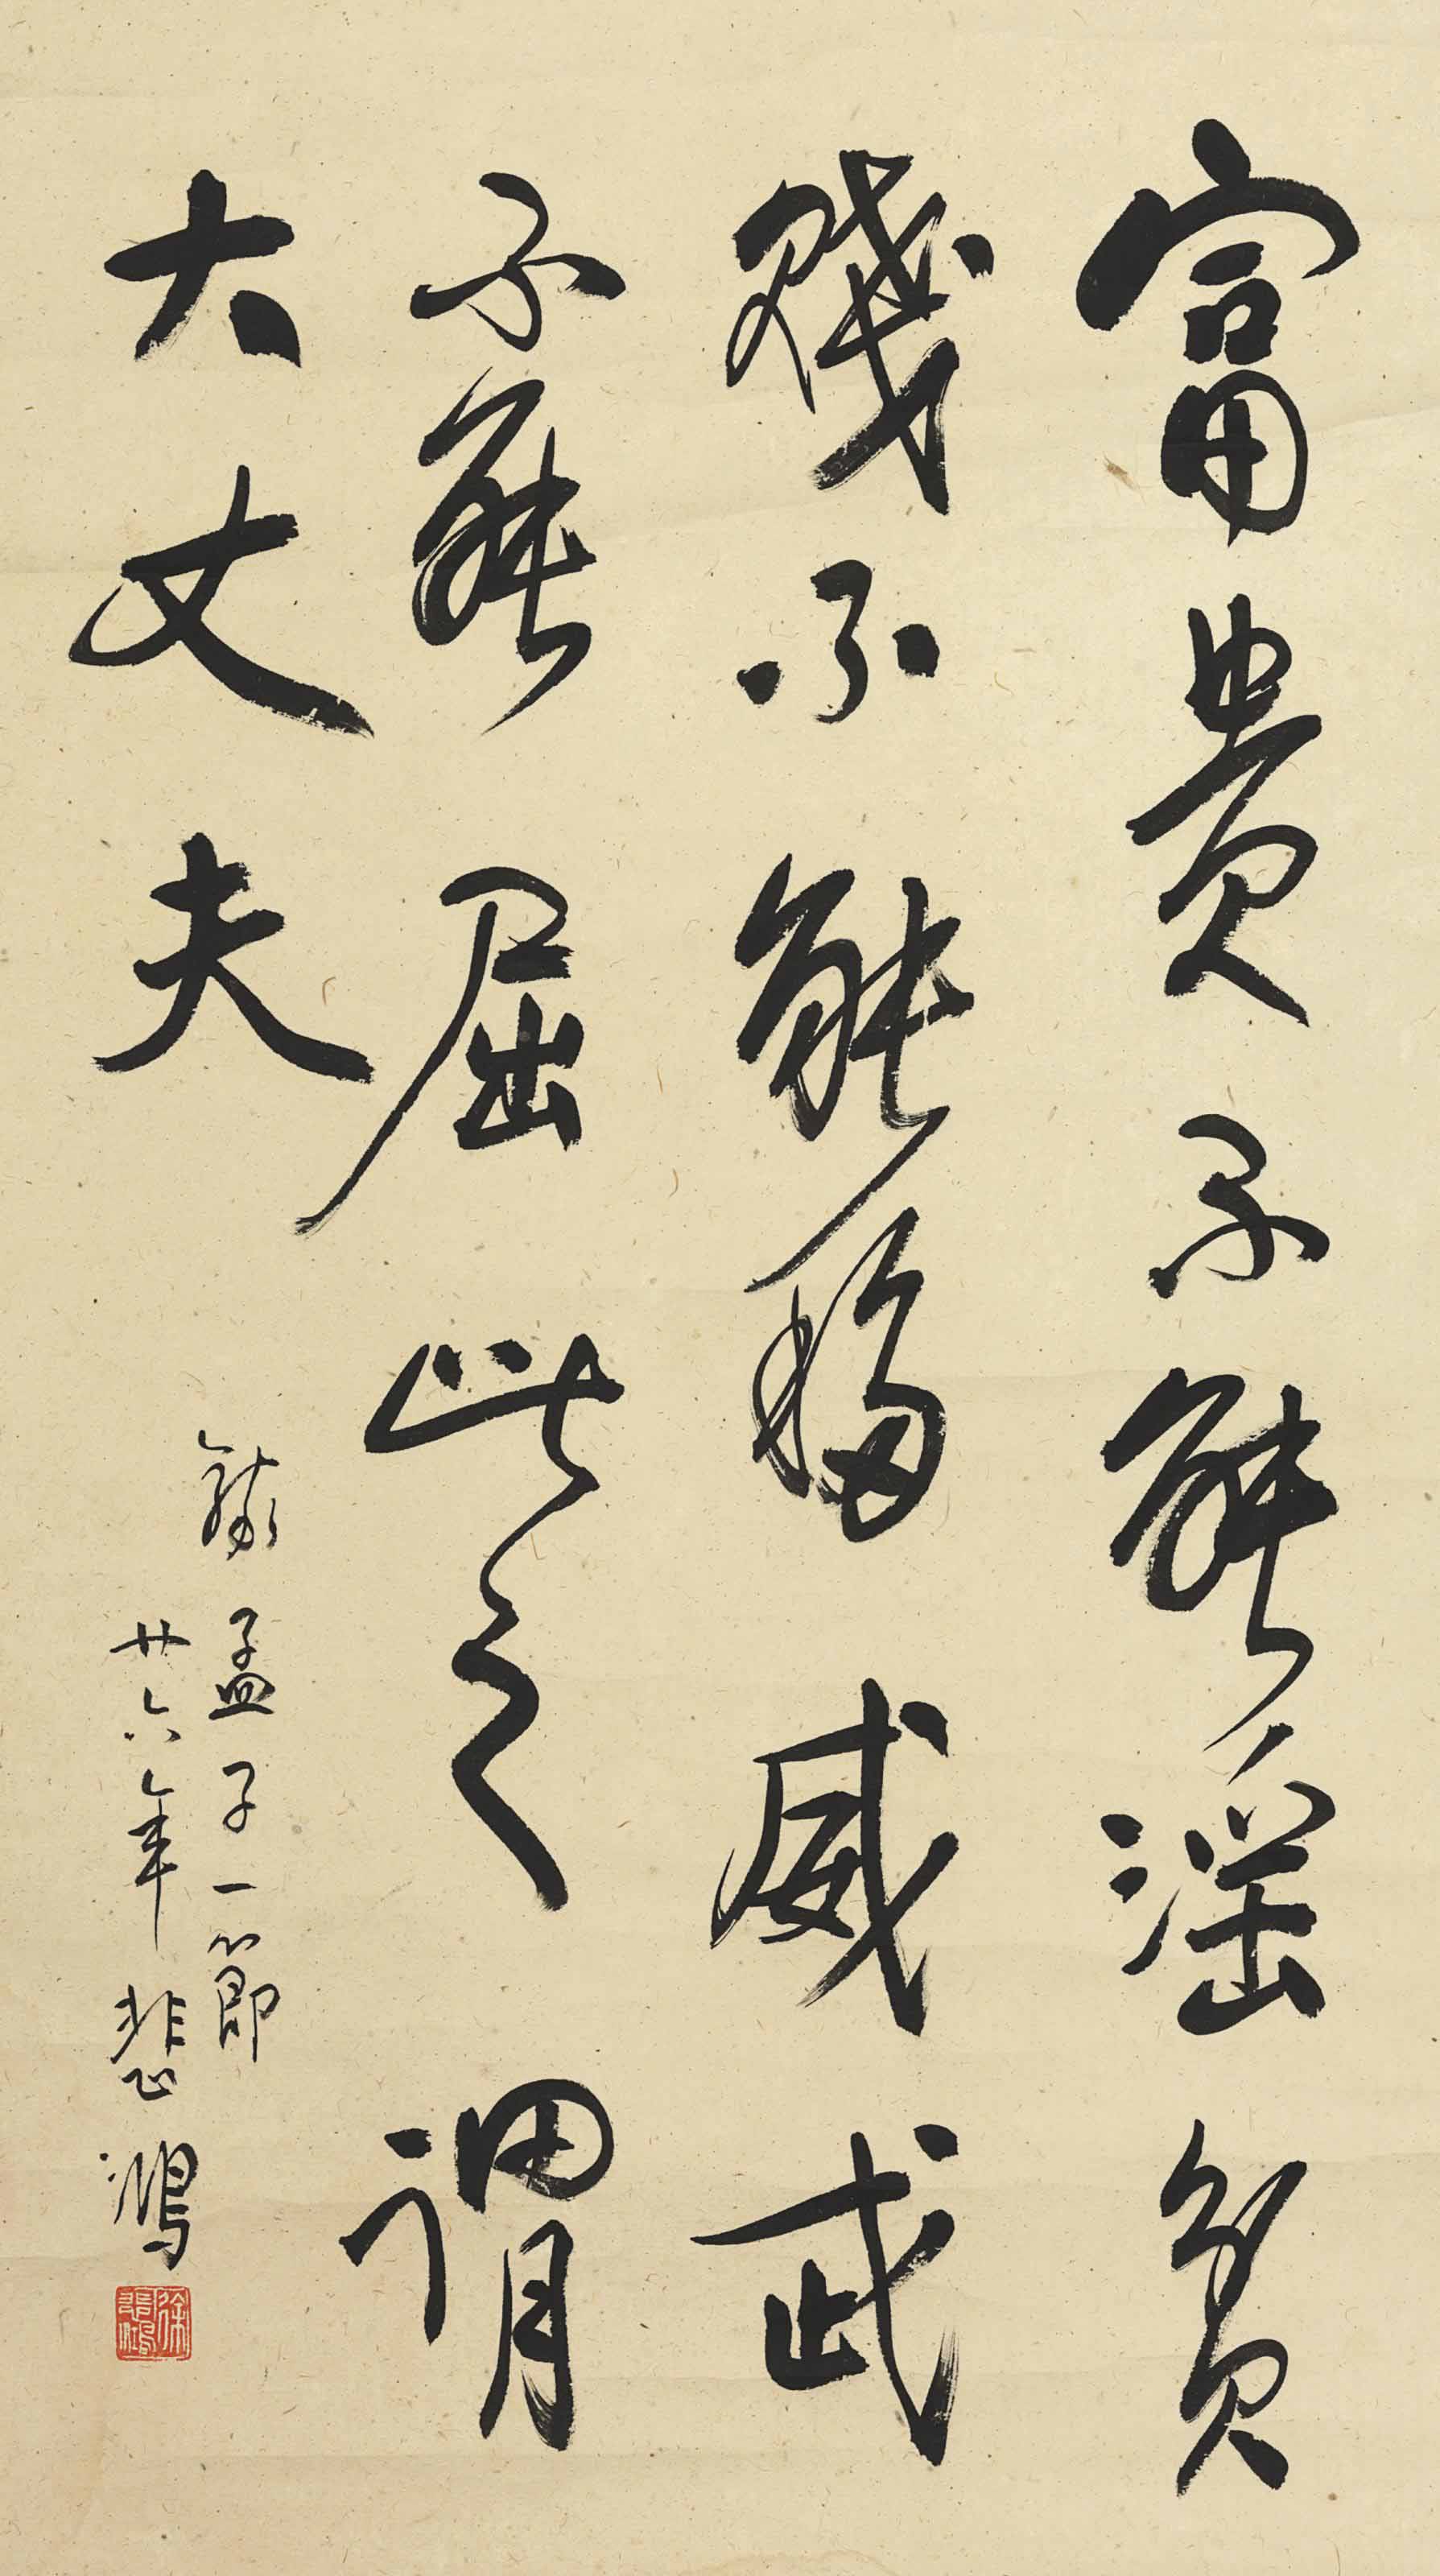 富貴不能淫貧
賤不能移威武
不能屈此之謂
大丈夫
錄孟子一節
廿六年悲鴻
徐悲鴻